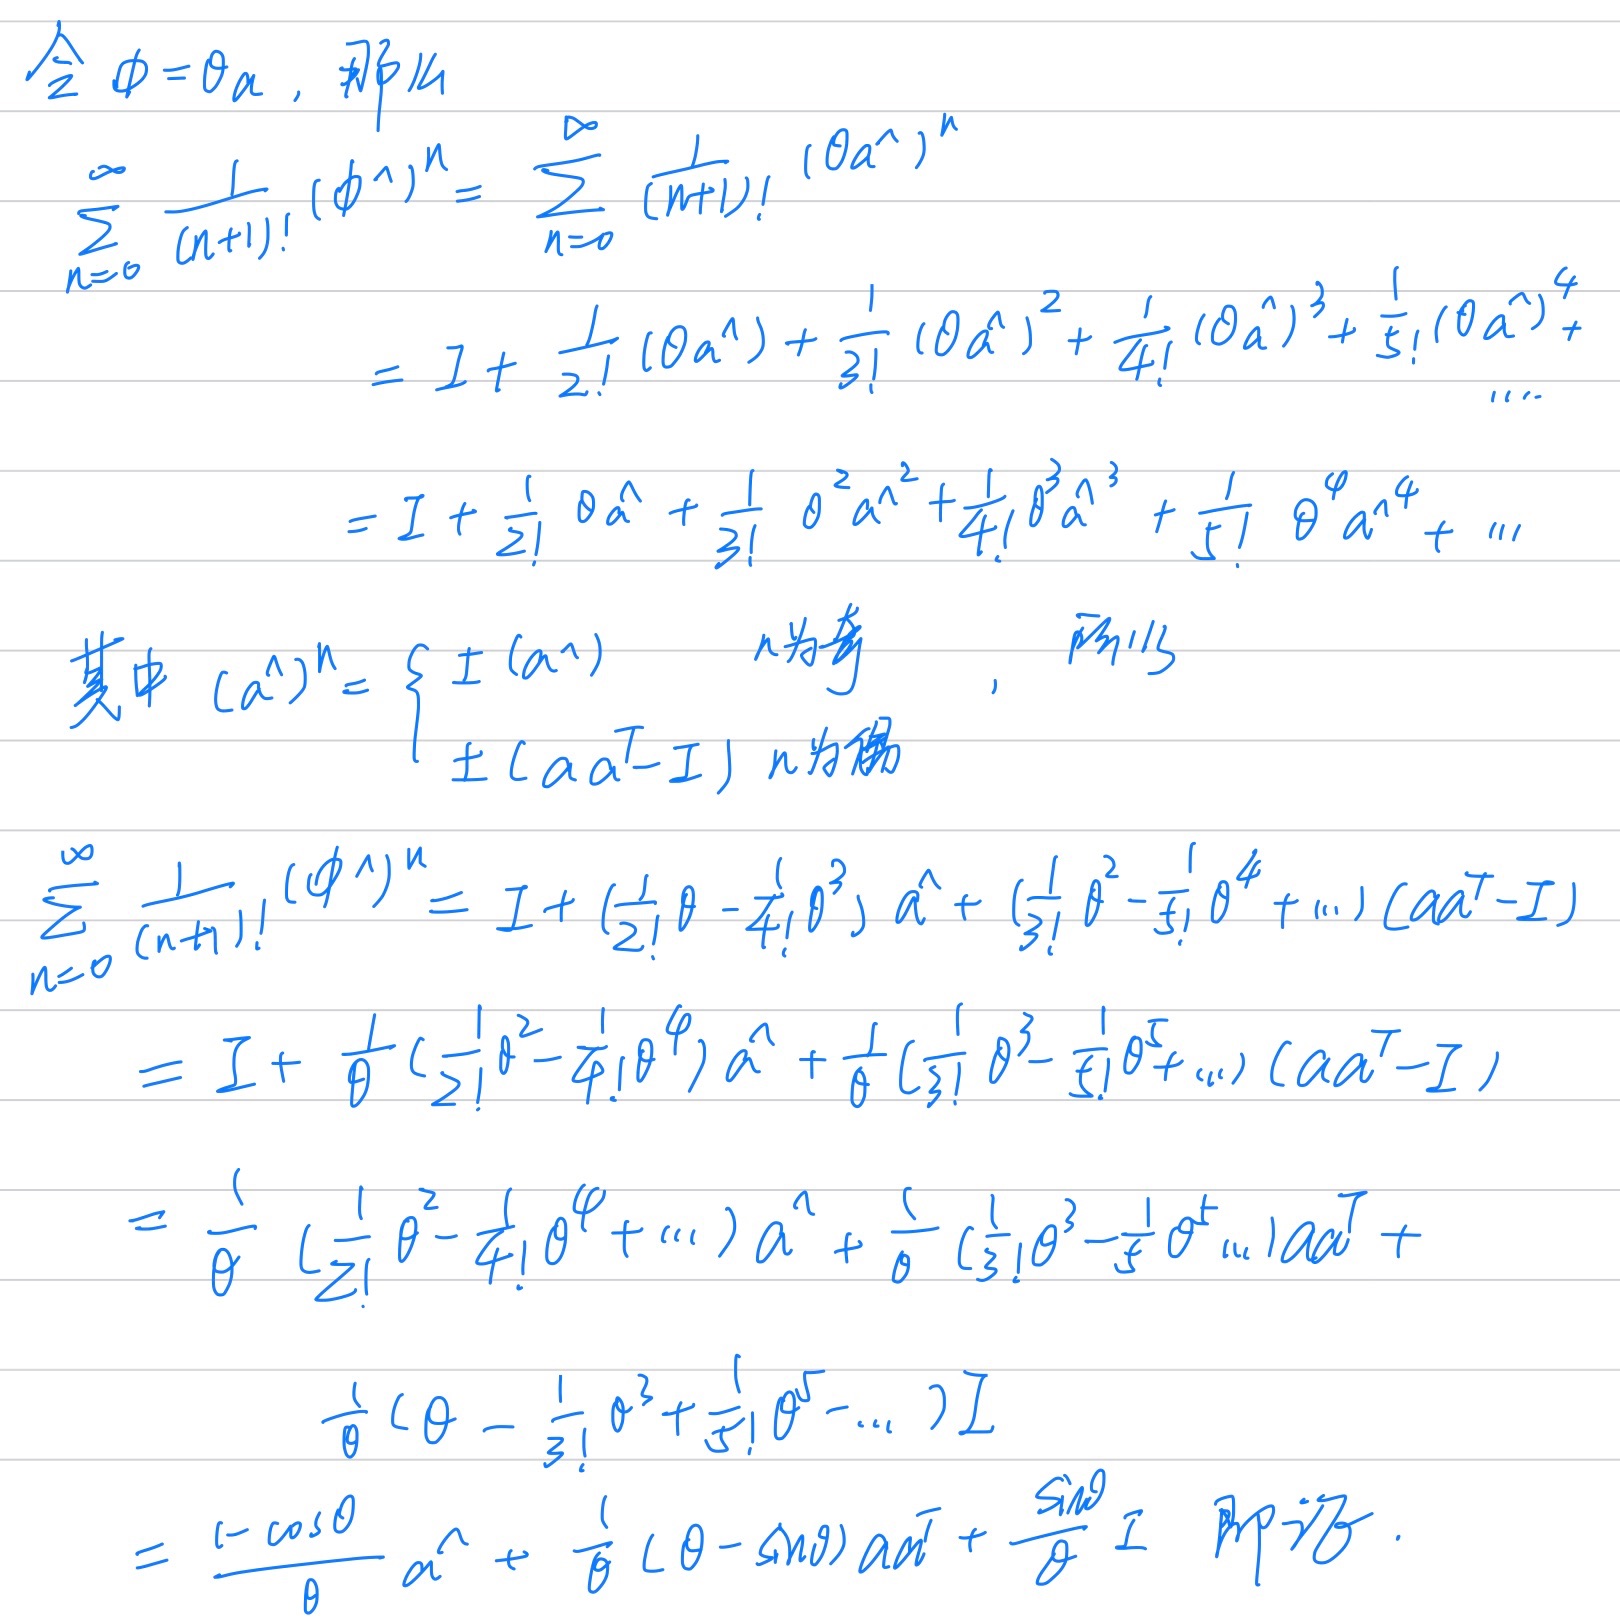 令 ϕ=θa, 那么
∑_{n=0}^{∞} 1/(n+1)! (ϕ^)^n = ∑_{n=0}^{∞} 1/(n+1)! (θa^)^n
= I + 1/2! (θa^) + 1/3! (θa^)^2 + 1/4! (θa^)^3 + 1/5! (θa^)^4 + ....
= I + 1/2! θa^ + 1/3! θ^2 a^^2 + 1/4! θ^3 a^^3 + 1/5! θ^4 a^^4 + ...
其中 (a^)^n = { ±(a^) n为奇 , 所以
±(aa^T-I) n为偶
∑_{n=0}^{∞} 1/(n+1)! (ϕ^)^n = I + (1/2! θ - 1/4! θ^3) a^ + (1/3! θ^2 - 1/5! θ^4 + ...) (aa^T-I)
= I + 1/θ (1/2! θ^2 - 1/4! θ^4) a^ + 1/θ (1/3! θ^3 - 1/5! θ^5 + ...) (aa^T-I)
= 1/θ (1/2! θ^2 - 1/4! θ^4 + ...) a^ + 1/θ (1/3! θ^3 - 1/5 θ^5 ...) aa^T +
1/θ (θ - 1/3! θ^3 + 1/5! θ^5 - ...) I
= (1-cosθ)/θ a^ + 1/θ (θ-sinθ) aa^T + sinθ/θ I 即证.